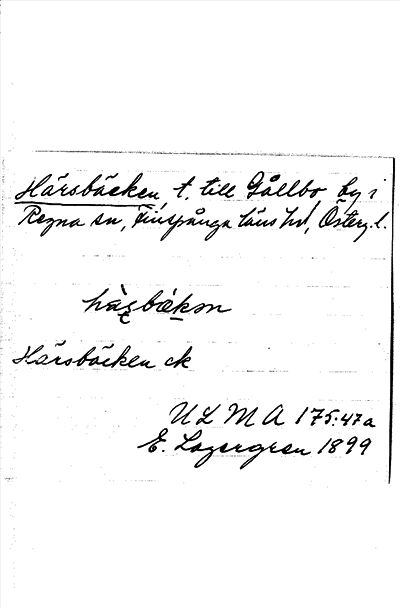 Härsbäcken, t. till Gållbo by i
Regna sn, Finspånga läns hd, Österg. l.
hàʂbækən
Härsbäcken ek
ULMA 175:47a
E. Lagergren 1899